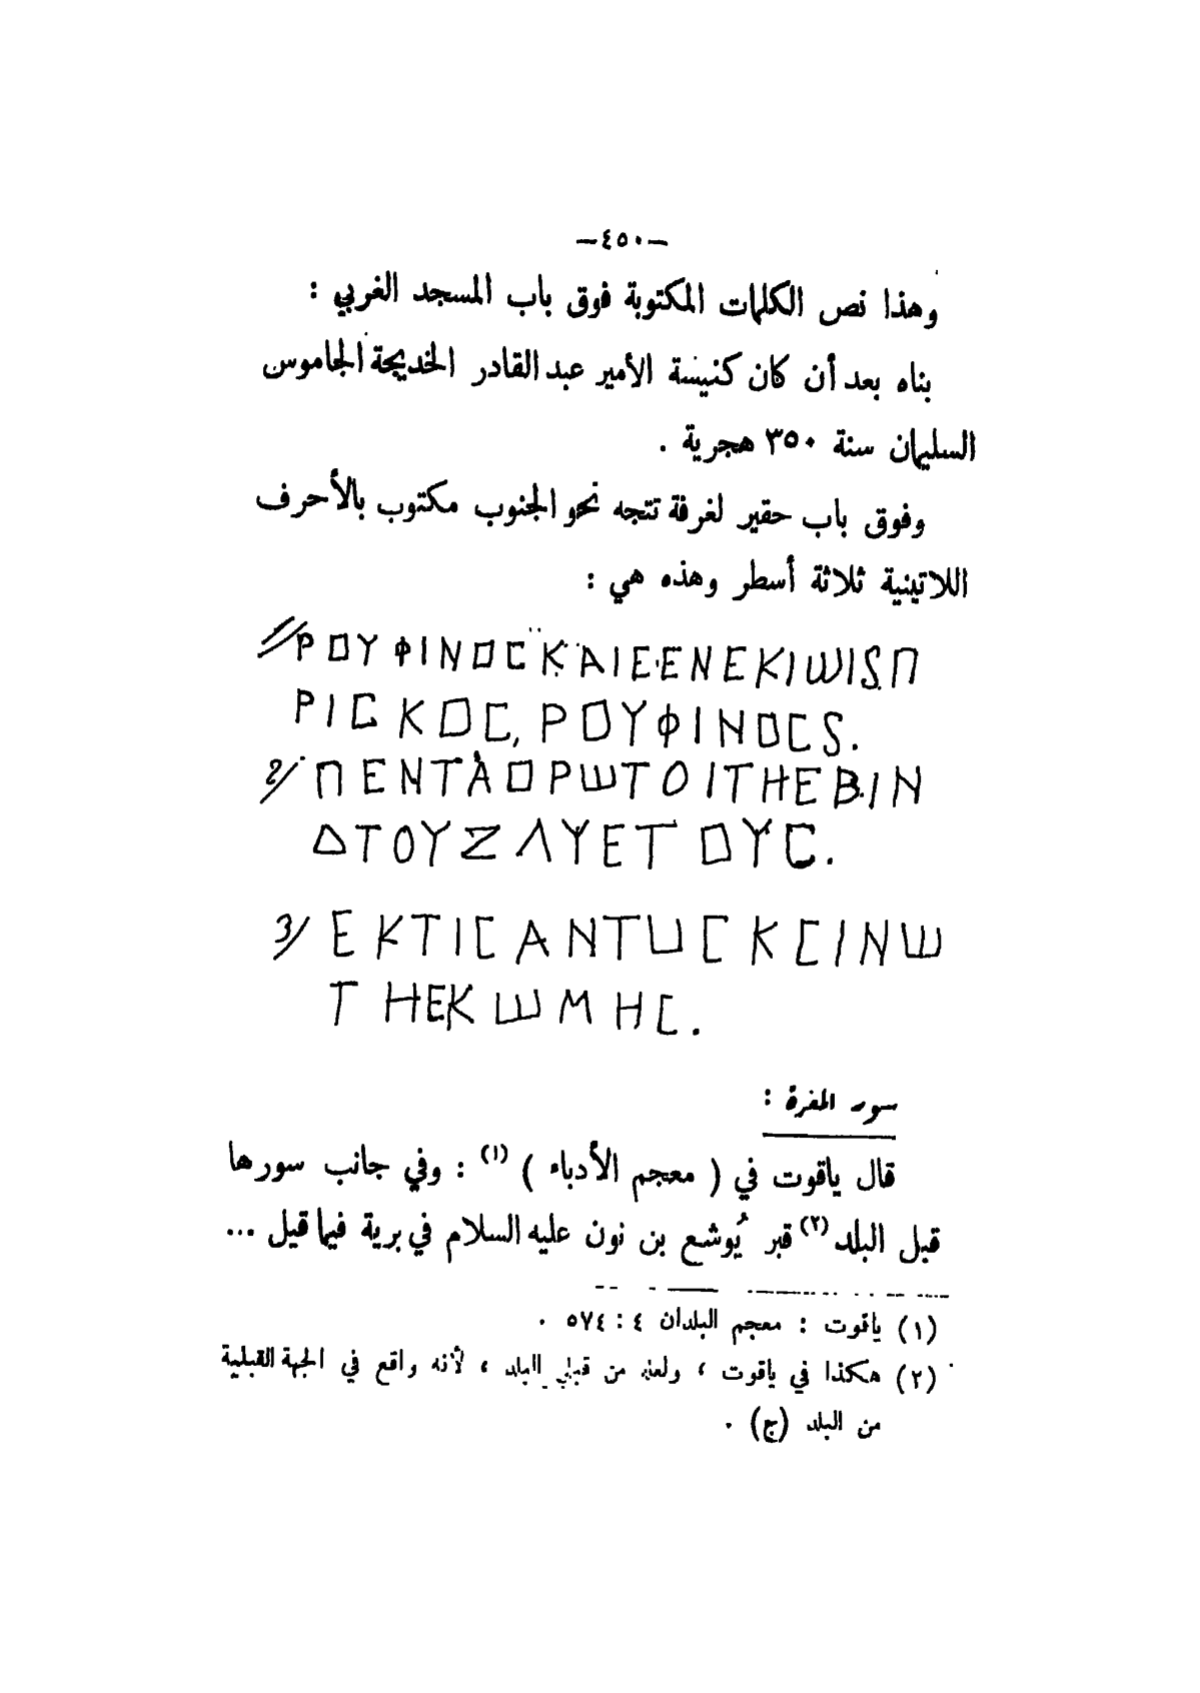 —٤٥٠—
وهذا نص الكلمات المكتوبة فوق باب المسجد الغربي :
بناه بعد أن كان كنيسة الأمير عبد القادر الخديجة الجاموس
السليمان سنة ٣٥٠ هجرية .
وفوق باب حقير لغرفة تتجه نحو الجنوب مكتوب بالأحرف
اللاتينية ثلاثة أسطر وهذه هي :
1/ ΡΟΥΦΙΝΟC ΚΑΙ ΕΕΝΕΚΙШΙS Π
ΡΙC ΚΟC, ΡΟΥΦΙΝΟC S.
2/ ΠΕΝΤΑΟΡШΤΟΙΤΗΕΒΙΝ
ΔΤΟΥΖΛΥΕΤΟΥC.
3/ ΕΚΤΙCΑΝΤUCΚCΙΝШ
ΤΗΕΚШΜΗC.
سور المغرة :
قال ياقوت في ( معجم الأدباء ) (١) : وفي جانب سورها
قبل البلد (٢) قبر يُوشع بن نون عليه السلام في برية فيما قيل ...
(١) ياقوت : معجم البلدان ٤ : ٥٧٤ .
(٢) هكذا في ياقوت ، ولعله من قبلي البلد ، لأنه واقع في الجهة القبلية
من البلد (ج) .